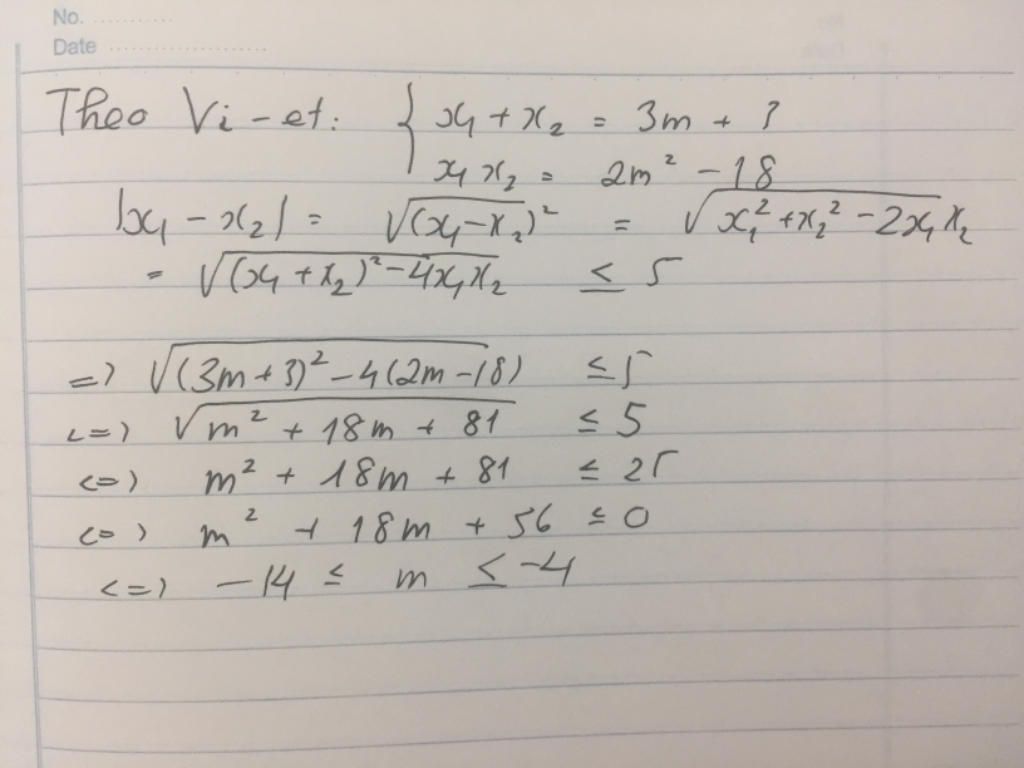 No. ............
Date ........................
Theo Vi-et: { x₁ + x₂ = 3m + 3
x₁x₂ = 2m² - 18
|x₁ - x₂| = √(x₁-x₂)² = √x₁²+x₂²-2x₁x₂
= √(x₁+x₂)²-4x₁x₂ ≤ 5
=> √(3m+3)²-4(2m-18) ≤ 5
<=> √m² + 18m + 81 ≤ 5
<=> m² + 18m + 81 ≤ 25
<=> m² + 18m + 56 ≤ 0
<=> -14 ≤ m ≤ -4